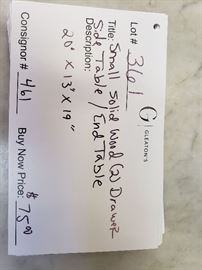 Lot# 361
G
GLEATON'S
Title: Small Solid Wood (2) Drawer
Side Table / End Table
Description:
20" x 13" x 19"
Consignor # 461
Buy Now Price: $75.00